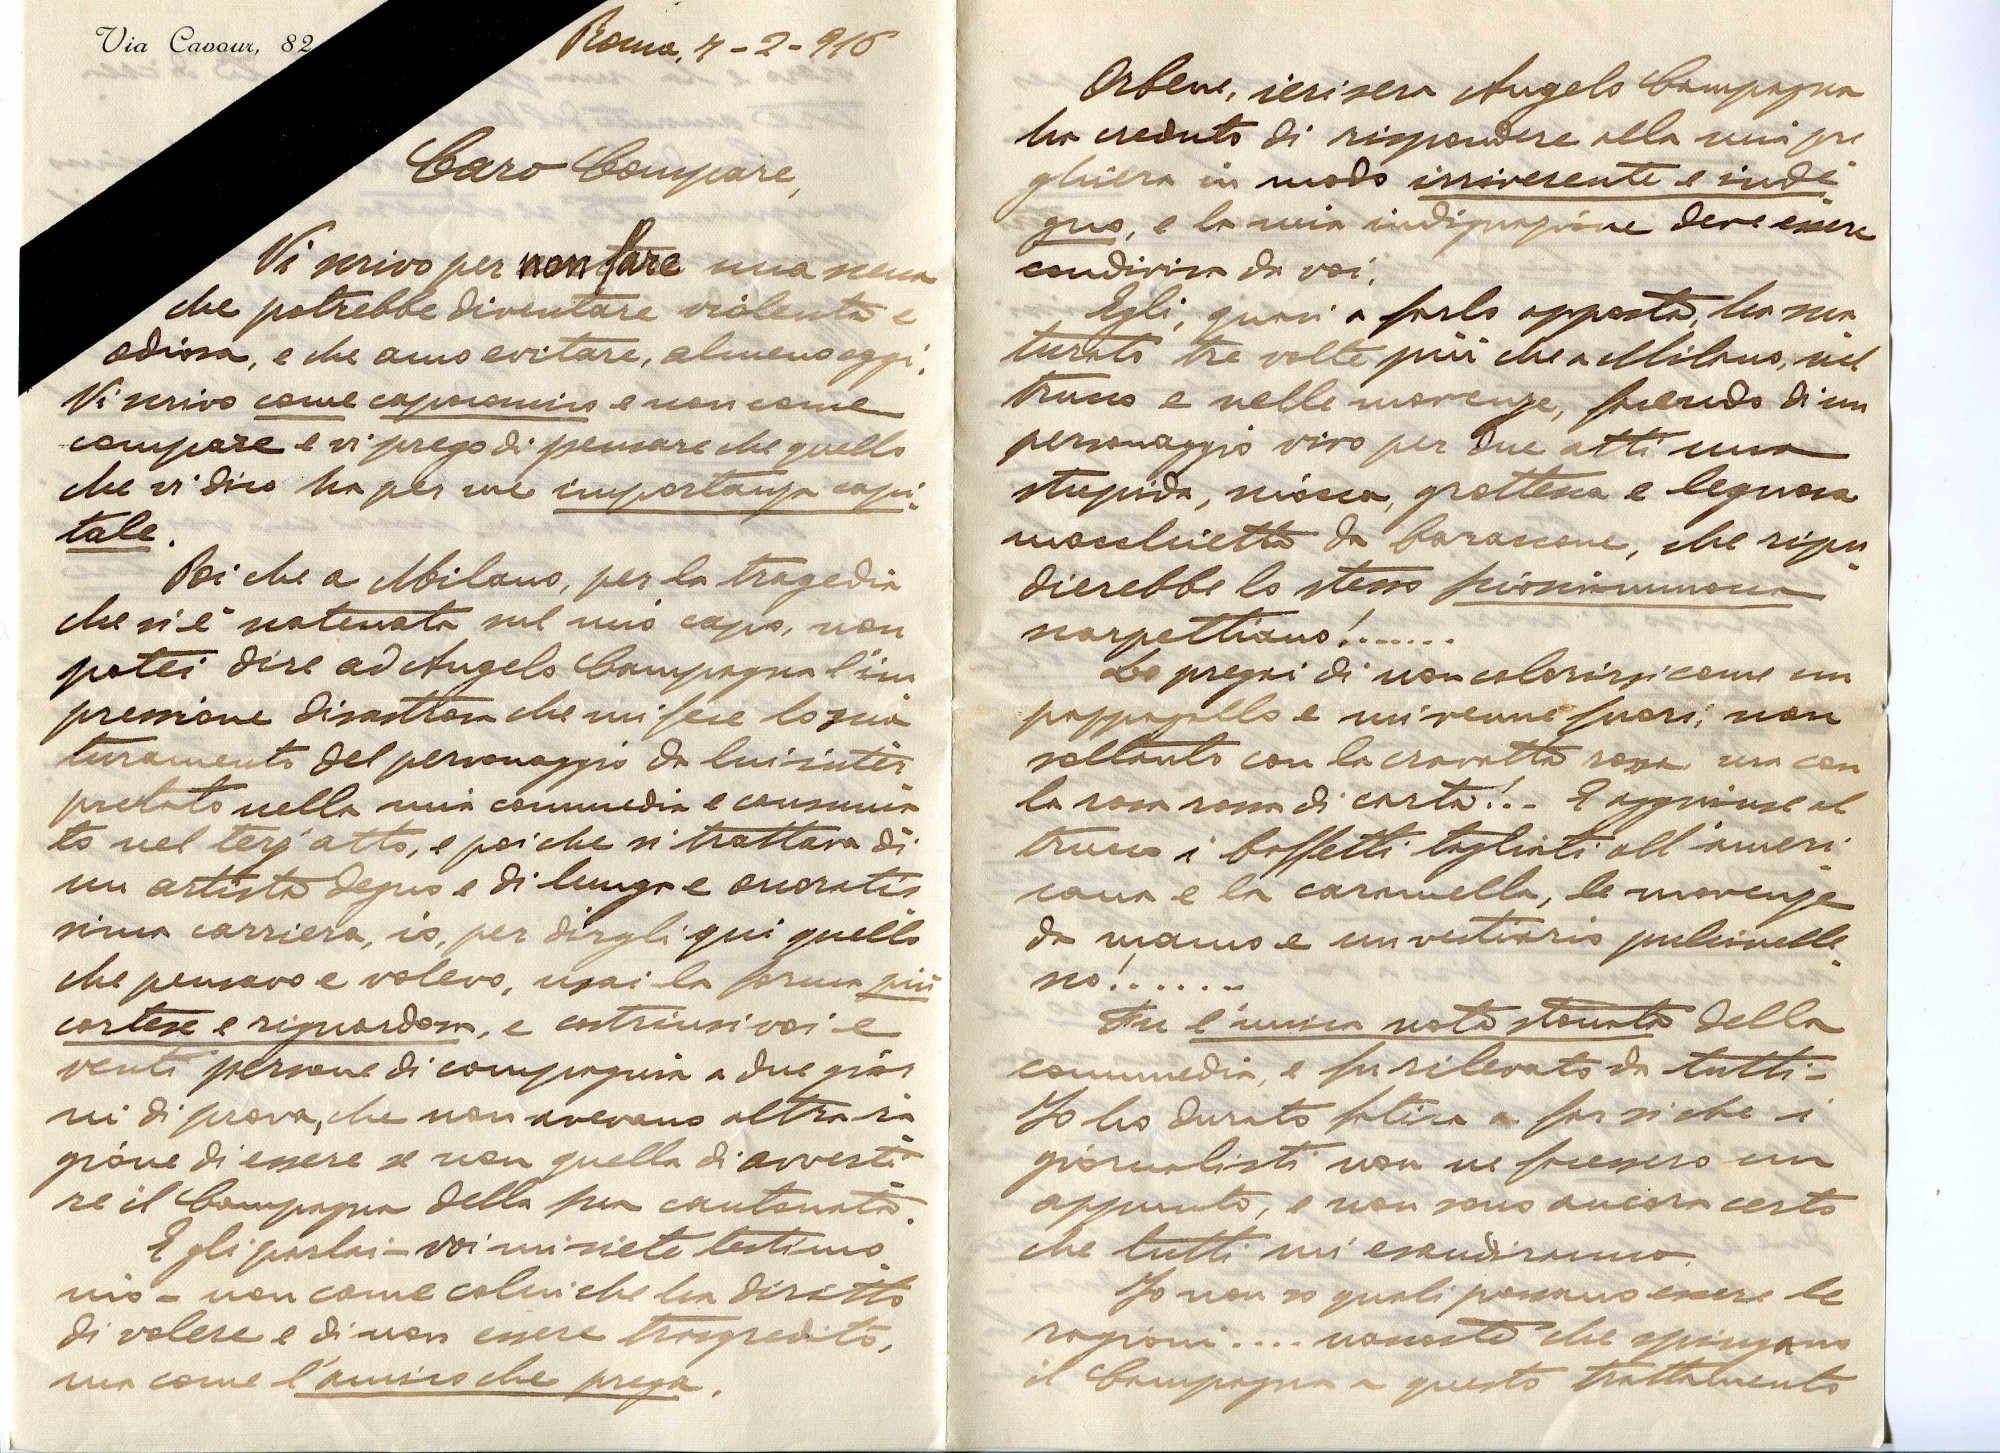 Via Cavour, 82
Roma, 4-2-916
Caro Compare,
Vi scrivo per non fare una scena
che potrebbe diventare violenta e
odiosa, e che amo evitare, almeno oggi.
Vi scrivo come capocomico e non come
compare e vi prego di pensare che quello
che vi dico ha per me importanza capi-
tale.
Poi che a Milano, per la tragedia
che si è scatenata sul mio capo, non
potei dire ad Angelo Campagna l'im
pressione disastrosa che mi fece lo sna
turamento del personaggio da lui inter
pretato nella mia commedia e consuma
to nel terz'atto, e poi che si trattava di
un artista degno e di lunga e onoratis
sima carriera, io, per dirgli qui quello
che pensavo e volevo, usai la forma più
cortese e riguardosa, e costrinsi voi e
venti persone di compagnia a due gior
ni di prova, che non avevano altra ra
gione di essere se non quella di avverti
re il Campagna della sua cantonata.
E gli parlai - voi mi siete testimo
nio - non come colui che ha diritto
di volere e di non essere trasgredito,
ma come l'amico che prega.
Orbene, ierisera Angelo Campagna
ha creduto di rispondere alla mia pre
ghiera in modo irriverente e inde-
gno, e la mia indignazione deve essere
condivisa da voi.
Egli, quasi a farlo apposta, ha sna
turato tre volte più che a Milano, nel
trucco e nelle movenze, facendo di un
personaggio vivo per due atti una
stupida, sciocca, grottesca e legnosa
macchietta da baraccone, che ripu-
dierebbe lo stesso sciosciammocca
scarpettiano!.......
Lo pregai di non colorirsi come un
pappagallo e mi venne fuori, non
soltanto con la cravatta rossa ma con
la rosa rossa di carta!.. E aggiunse al
trucco i baffetti tagliati all'ameri-
cana e la caramella, le movenze
da mano e un vestiario pulcinelle-
sco!.......
Fu l'unica nota stonata della
commedia, e fu rilevato da tutti -
Io ho durato fatica a far sì che i
giornalisti non ne facessero un
appunto, e non sono ancora certo
che tutti mi esaudiranno.
Io non so quali possano essere le
ragioni.... nascoste che spingono
il Campagna a questo trattamento